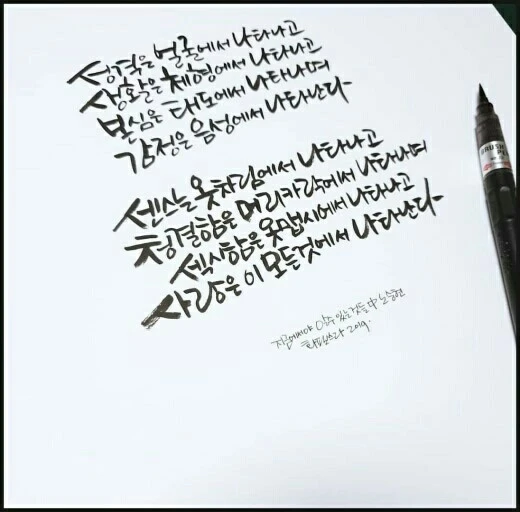 성격은 얼굴에서 나타나고
생활은 체형에서 나타나고
본심은 태도에서 나타나며
감정은 음성에서 나타난다
센스는 옷차림에서 나타나고
청결함은 머리카락에서 나타나며
섹시함은 옷맵시에서 나타나고
사랑은 이 모든것에서 나타난다
지금에서야 알수 있는 것들 中 노승현
2019.
BRUSH